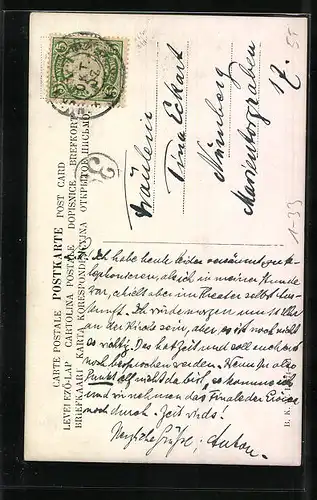 CARTE POSTALE POSTKARTE POST CARD
LEVELEZŐ-LAP CARTOLINA POSTALE DOPISNICE BREFKORT
BRIEFKAART KARTA KORESPONDENCYJNA ОТКРЫТОЕ ПИСЬМО
3
Fräulein
Tina Eckart
Nürnberg
Marientorgraben
17.
Ich habe heute leider versäumt zu te-
lephonieren, als ich in meiner Stunde
war, erhielt aber im Theater selbst Aus-
kunft. Ich würde morgen um 11 Uhr
an der Kirche sein, aber es ist noch nicht
so richtig. Das hat Zeit und soll auch erst
noch besprochen werden. Wenn Sie also
Punkt elf nicht da bist, so komme ich
und wir nehmen das Finale der Eroica
noch durch. Zeit wird's!
Herzliche Grüße, Anton.
B. K.
1-33